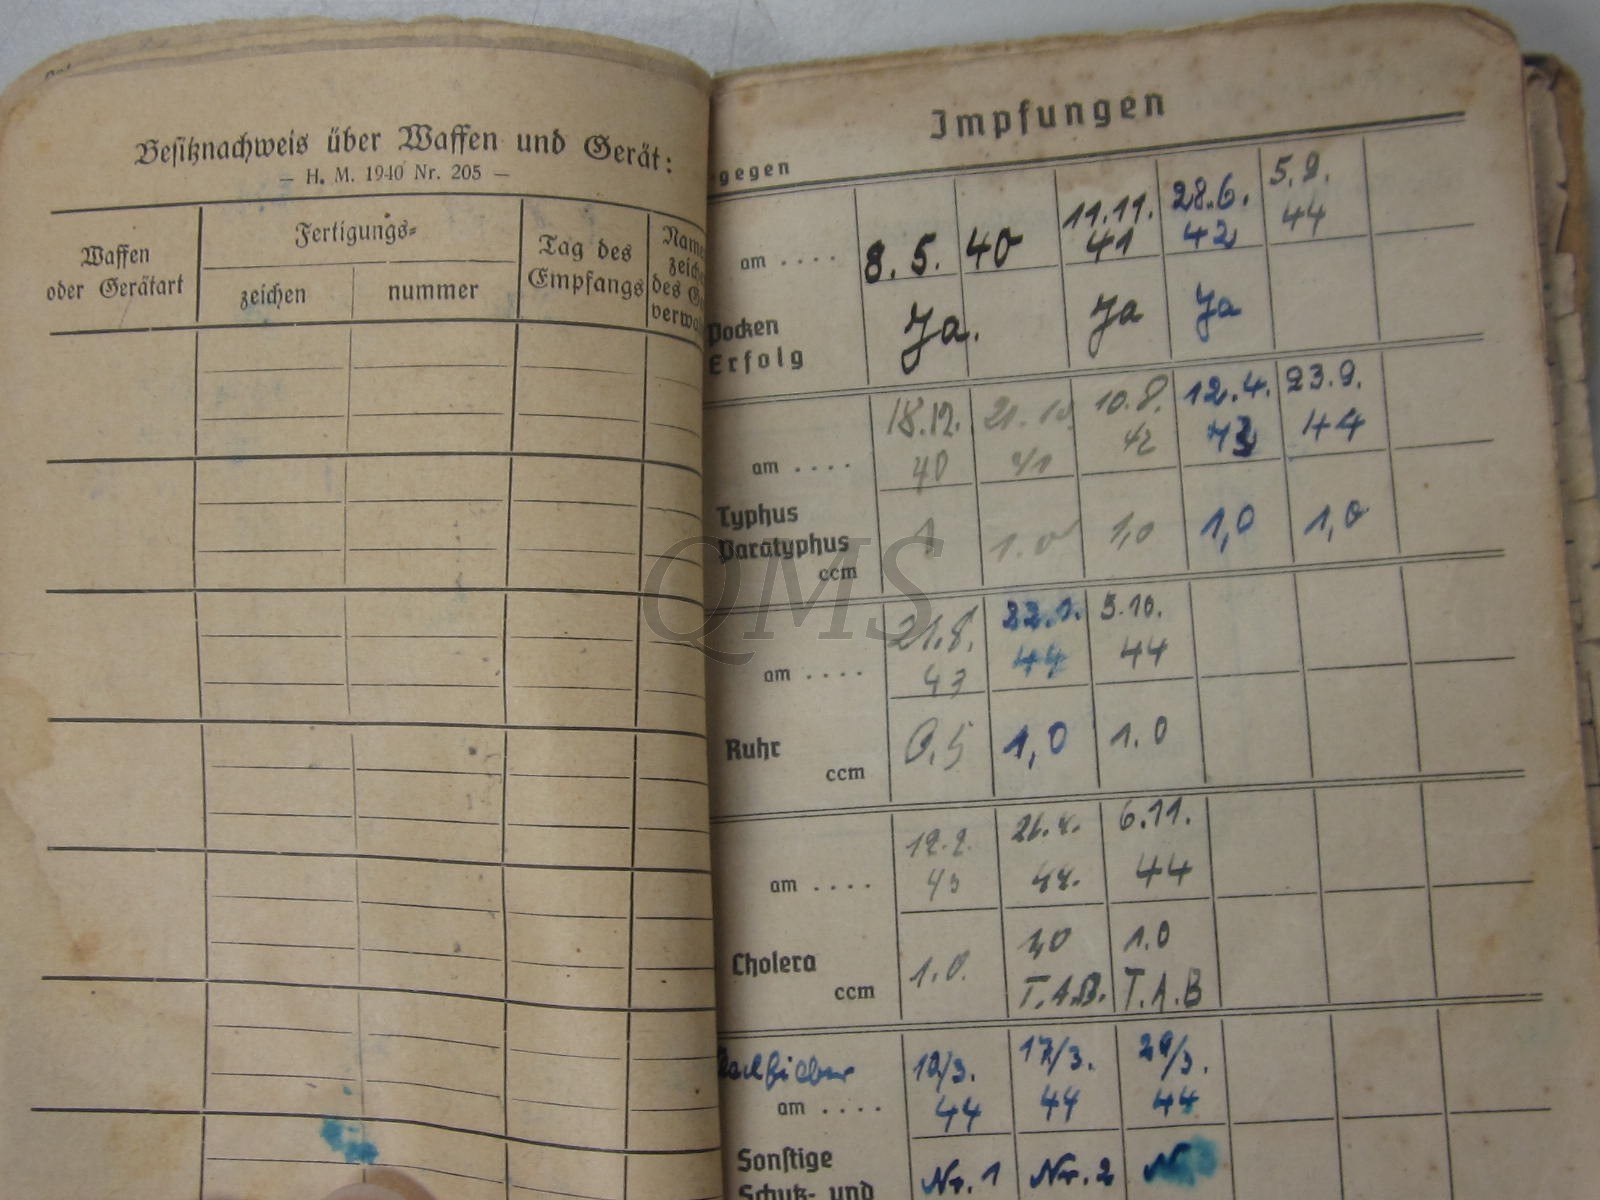 Besitznachweis über Waffen und Gerät:
— H. M. 1940 Nr. 205 —
Waffen
oder Gerätart
Fertigungs-
zeichen
nummer
Tag des
Empfangs
Name
zeich
des G
verwa
Impfungen
gegen
am . . . . 8. 5. 40 11.11. 41 28.6. 42 5.9. 44
Pocken
Erfolg Ja. Ja Ja
am . . . . 18.12. 40 21.10 41 10.8. 42 12.4. 43 23.9. 44
Typhus
Paratyphus
ccm 1 1.0 1,0 1,0 1,0
QMS
am . . . . 21.8. 43 44 5.10. 44
Ruhr
ccm 0,5 1,0 1.0
am . . . . 12.2. 43 44. 6.11. 44
Cholera 1.0. 1,0 1.0
ccm T.A.B. T.A.B
am . . . . 10/3. 44 17/3. 44 29/3. 44
Sonstige
Schutz- und Nr. 1 Nr. 2